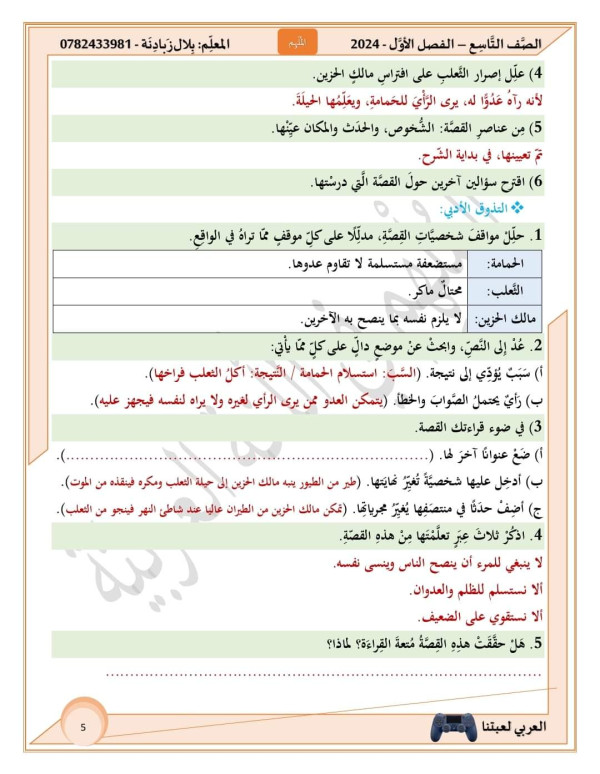 الصَّف التَّاسِع – الفصل الأوَّل - 2024
المُلهِم
المعلِّم: بِلال زَبادِنَة - 0782433981
4) علِّل إصرار الثَّعلب على افتراسِ مالكٍ الحزين.
لأنه رآهُ عَدُوًّا له، يرى الرَّأْيَ للحَمامةِ، ويعَلِّمُها الحيلَةَ.
5) مِن عناصرِ القصَّة: الشُّخوص، والحَدَث والمكان عيِّنْها.
تمّ تعيينها، في بداية الشّرح.
6) اقترح سؤالين آخرين حولَ القصَّة الَّتي درستْها.
❖ التذوق الأدبي:
1. حلِّلْ مواقفَ شخصيَّاتِ القِصَّةِ، مدلِّلًا على كلِّ موقفٍ ممّا تراهُ في الواقعِ.
الحمامة: مستضعفة مستسلمة لا تقاوم عدوها.
الثَّعلب: محتالٌ ماكر.
مالك الحزين: لا يلزم نفسه بما ينصح به الآخرين.
2. عُدْ إلى النَّصِّ، وابحثْ عنْ موضعٍ دالٍّ على كلٍّ ممّا يأتي:
أ) سَبَبٌ يُؤدّي إلى نتيجة. (السَّبَبُ: استسلام الحمامة / النَّتيجة: أكلُ الثعلب فراخها).
ب) رَأيٌ يحتملُ الصَّوابَ والخطأَ. (يتمكن العدو ممن يرى الرأي لغيره ولا يراه لنفسه فيجهز عليه).
3) في ضوء قراءتك القصة.
أ) ضَعْ عنوانًا آخرَ لها. (............................................).
ب) أدخِل عليها شخصيَّةً تُغيِّرُ نهايَتَها. (طير من الطيور ينبه مالك الحزين إلى حيلة الثعلب ومكره فينقذه من الموت).
ج) أضِفْ حدَثًا في منتصَفِها يُغيِّرُ مجرياتِها. (تمكن مالك الحزين من الطيران عاليا عند شاطئ النهر فينجو من الثعلب).
4. اذكُرْ ثلاثَ عِبَرٍ تعلَّمْتَها مِنْ هذهِ القصّةِ.
لا ينبغي للمرء أن ينصح الناس وينسى نفسه.
ألا نستسلم للظلم والعدوان.
ألا نستقوي على الضعيف.
5. هَلْ حقَّقَتْ هذِهِ القِصَّةُ مُتعةَ القِراءَة؟ لماذا؟
............................................................
العربي لعبتنا
5